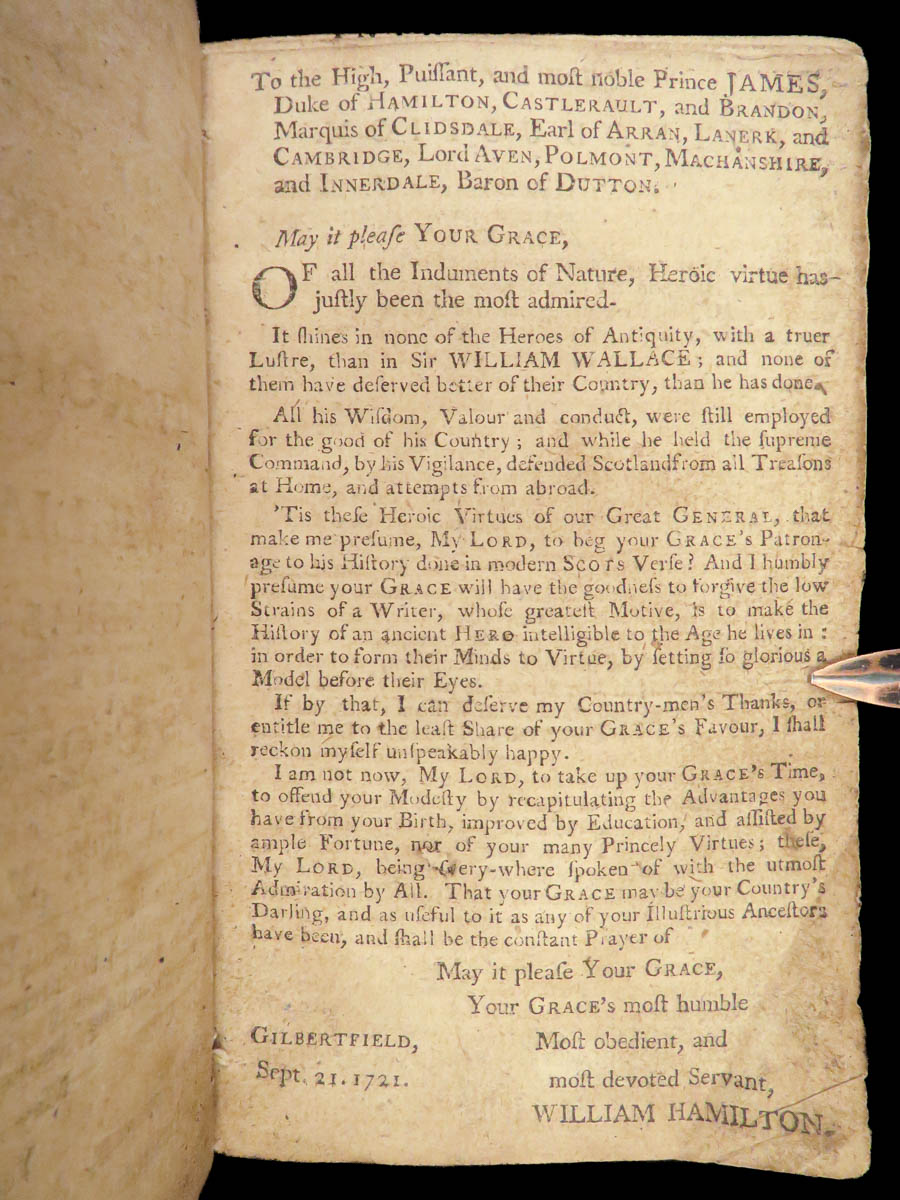 To the High, Puiſſant, and moſt noble Prince JAMES,
Duke of HAMILTON, CASTLERAULT, and BRANDON,
Marquis of CLIDSDALE, Earl of ARRAN, LANERK, and
CAMBRIDGE, Lord AVEN, POLMONT, MACHANSHIRE,
and INNERDALE, Baron of DUTTON.
May it pleaſe YOUR GRACE,
OF all the Induments of Nature, Heroic virtue has
juſtly been the moſt admired.
It ſhines in none of the Heroes of Antiquity, with a truer
Luſtre, than in Sir WILLIAM WALLACE; and none of
them have deſerved better of their Country, than he has done.
All his Wiſdom, Valour and conduct, were ſtill employed
for the good of his Country; and while he held the ſupreme
Command, by his Vigilance, defended Scotlandfrom all Treaſons
at Home, and attempts from abroad.
'Tis theſe Heroic Virtues of our Great GENERAL, that
make me preſume, My LORD, to beg your GRACE's Patron-
age to his Hiſtory done in modern SCOTS Verſe? And I humbly
preſume your GRACE will have the goodneſs to forgive the low
Strains of a Writer, whoſe greateſt Motive, is to make the
Hiſtory of an ancient HERO intelligible to the Age he lives in:
in order to form their Minds to Virtue, by ſetting ſo glorious a
Model before their Eyes.
If by that, I can deſerve my Country-men's Thanks, or
entitle me to the leaſt Share of your GRACE's Favour, I ſhall
reckon myſelf unſpeakably happy.
I am not now, My LORD, to take up your GRACE's Time,
to offend your Modeſty by recapitulating the Advantages you
have from your Birth, improved by Education, and aſſiſted by
ample Fortune, nor of your many Princely Virtues; theſe,
My LORD, being every-where ſpoken of with the utmoſt
Admiration by All. That your GRACE may be your Country's
Darling, and as uſeful to it as any of your Illuſtrious Anceſtors
have been, and ſhall be the conſtant Prayer of
May it pleaſe Your GRACE,
Your GRACE's moſt humble
GILBERTFIELD, Moſt obedient, and
Sept. 21. 1721. moſt devoted Servant,
WILLIAM HAMILTON.